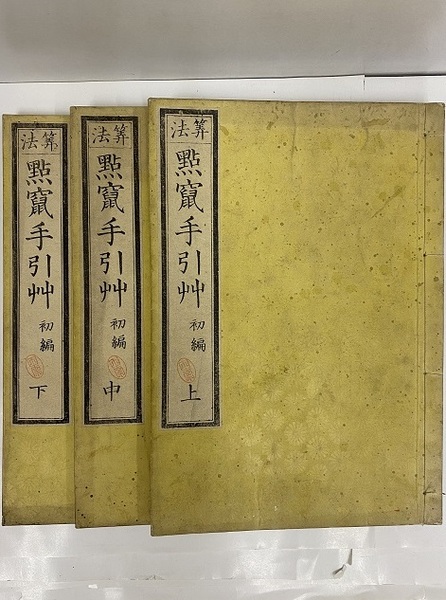 算法
點竄手引艸
初編
上
算法
點竄手引艸
初編
中
算法
點竄手引艸
初編
下